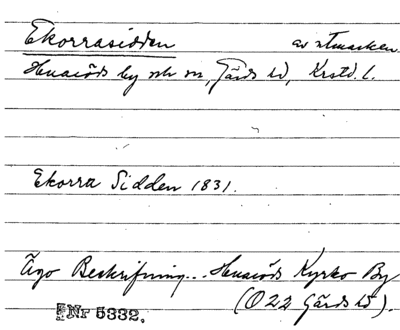 Ekorrasidden av utmarken.
Huaröds by och sn, Gärds hd, Krstd. l.
Ekorra Sidden 1831.
Ägo Beskrifning... Huaröds Kyrko By
(O 22 Gärds hd).
Nr 5332.